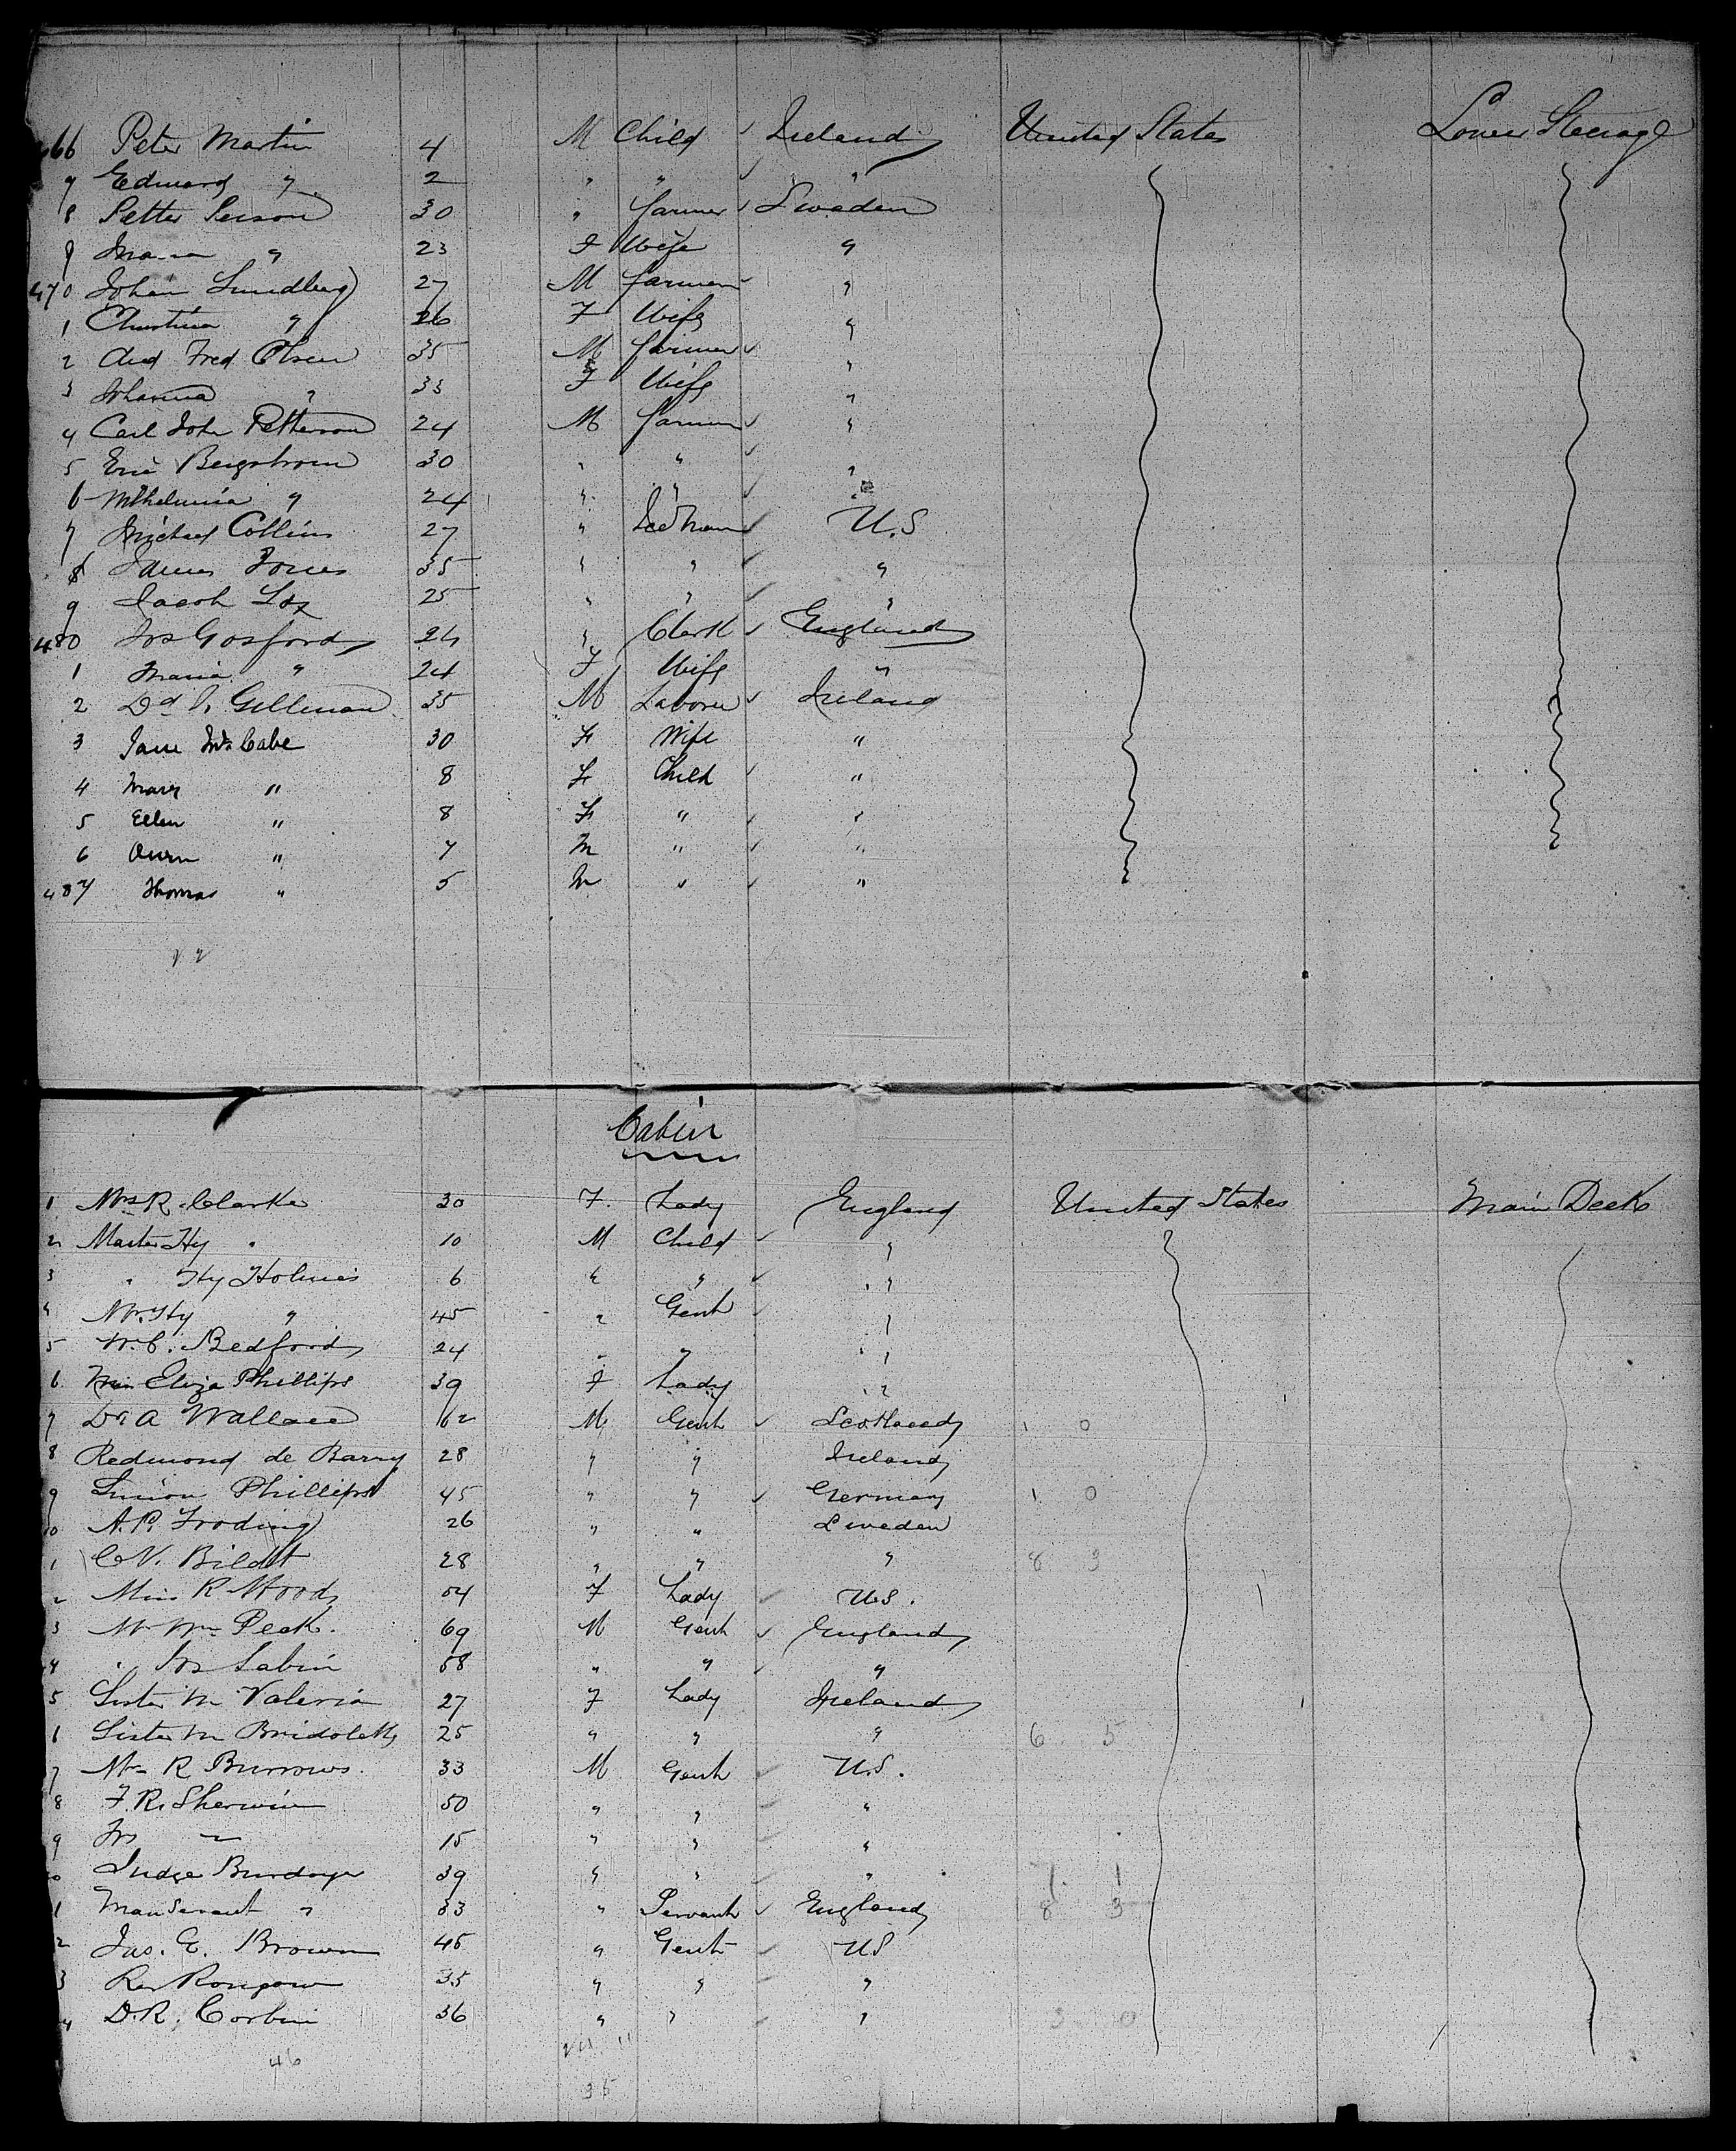 466 Peter Martin 4 M Child ✓ Ireland United States Lower Steerage
7 Edward " 2 " " ✓ "
8 Petter Person 30 " farmer ✓ Sweden
9 " 23 F Wife "
470 Johan Lundberg 27 M farmer "
1 Christina " 26 F Wife "
2 And Fred Olsen 35 M farmer ✓ "
3 Johanna " 33 F Wife "
4 Carl John Petterson 24 M farmer ✓ "
5 Eric Bergstrom 30 " " ✓ "
6 Wilhelmina " 24 " " ✓ "
7 Michael Collins 27 " ✓ U.S
8 James Jones 35 " " ✓ "
9 Jacob 25 " " ✓ "
480 Jos Gosford 24 " Clerk ✓ England
1 Maria " 24 F Wife "
2 Dd Gillman 35 M Laborer ✓ Ireland
3 Jane McCabe 30 F Wife "
4 Mary " 8 F Child ✓ "
5 Ellen " 8 F " ✓ "
6 Owen " 7 M " ✓ "
487 Thomas " 5 M " ✓ "
Cabin
1 Mrs R. Clarke 30 F. Lady England United States Main Deck
2 Master Hy " 10 M Child ✓ "
3 " Hy Holmes 6 " " ✓ "
4 Mr. Hy " 45 " Gent ✓ "
5 W.C. Bedford 24 " " "
6 Miss Eliza Phillips 39 F Lady "
7 Dr A Wallace 62 M Gent ✓ Scotland 1 0
8 Redmond de Barry 28 " " Ireland
9 Simion Phillips 45 " " ✓ Germany 1 0
10 A.P. Froding 26 " " Sweden
1 C.N. Bildt 28 " " " 8 3
2 Miss R Woods 54 F Lady ✓ U.S.
3 Mr Wm Peck. 69 M Gent ✓ England
4 " Jos Sabin 58 " " ✓ "
5 Sister M Valeria 27 F Lady Ireland
6 Sister M 25 " " " 6 5
7 Mr R Burrows. 33 M Gent ✓ U.S.
8 F.R. Sherwin 50 " " ✓ "
9 Jos " 15 " " ✓ "
20 Judge 39 " " ✓ " 7. 1
1 Manservant " 33 " Servant ✓ England 8 3
2 Jas. E. Brown 45 " Gent ✓ US
3 Rev 35 " " ✓ "
4 D.R. Corbin 36 " " ✓ " 3 0
46
35